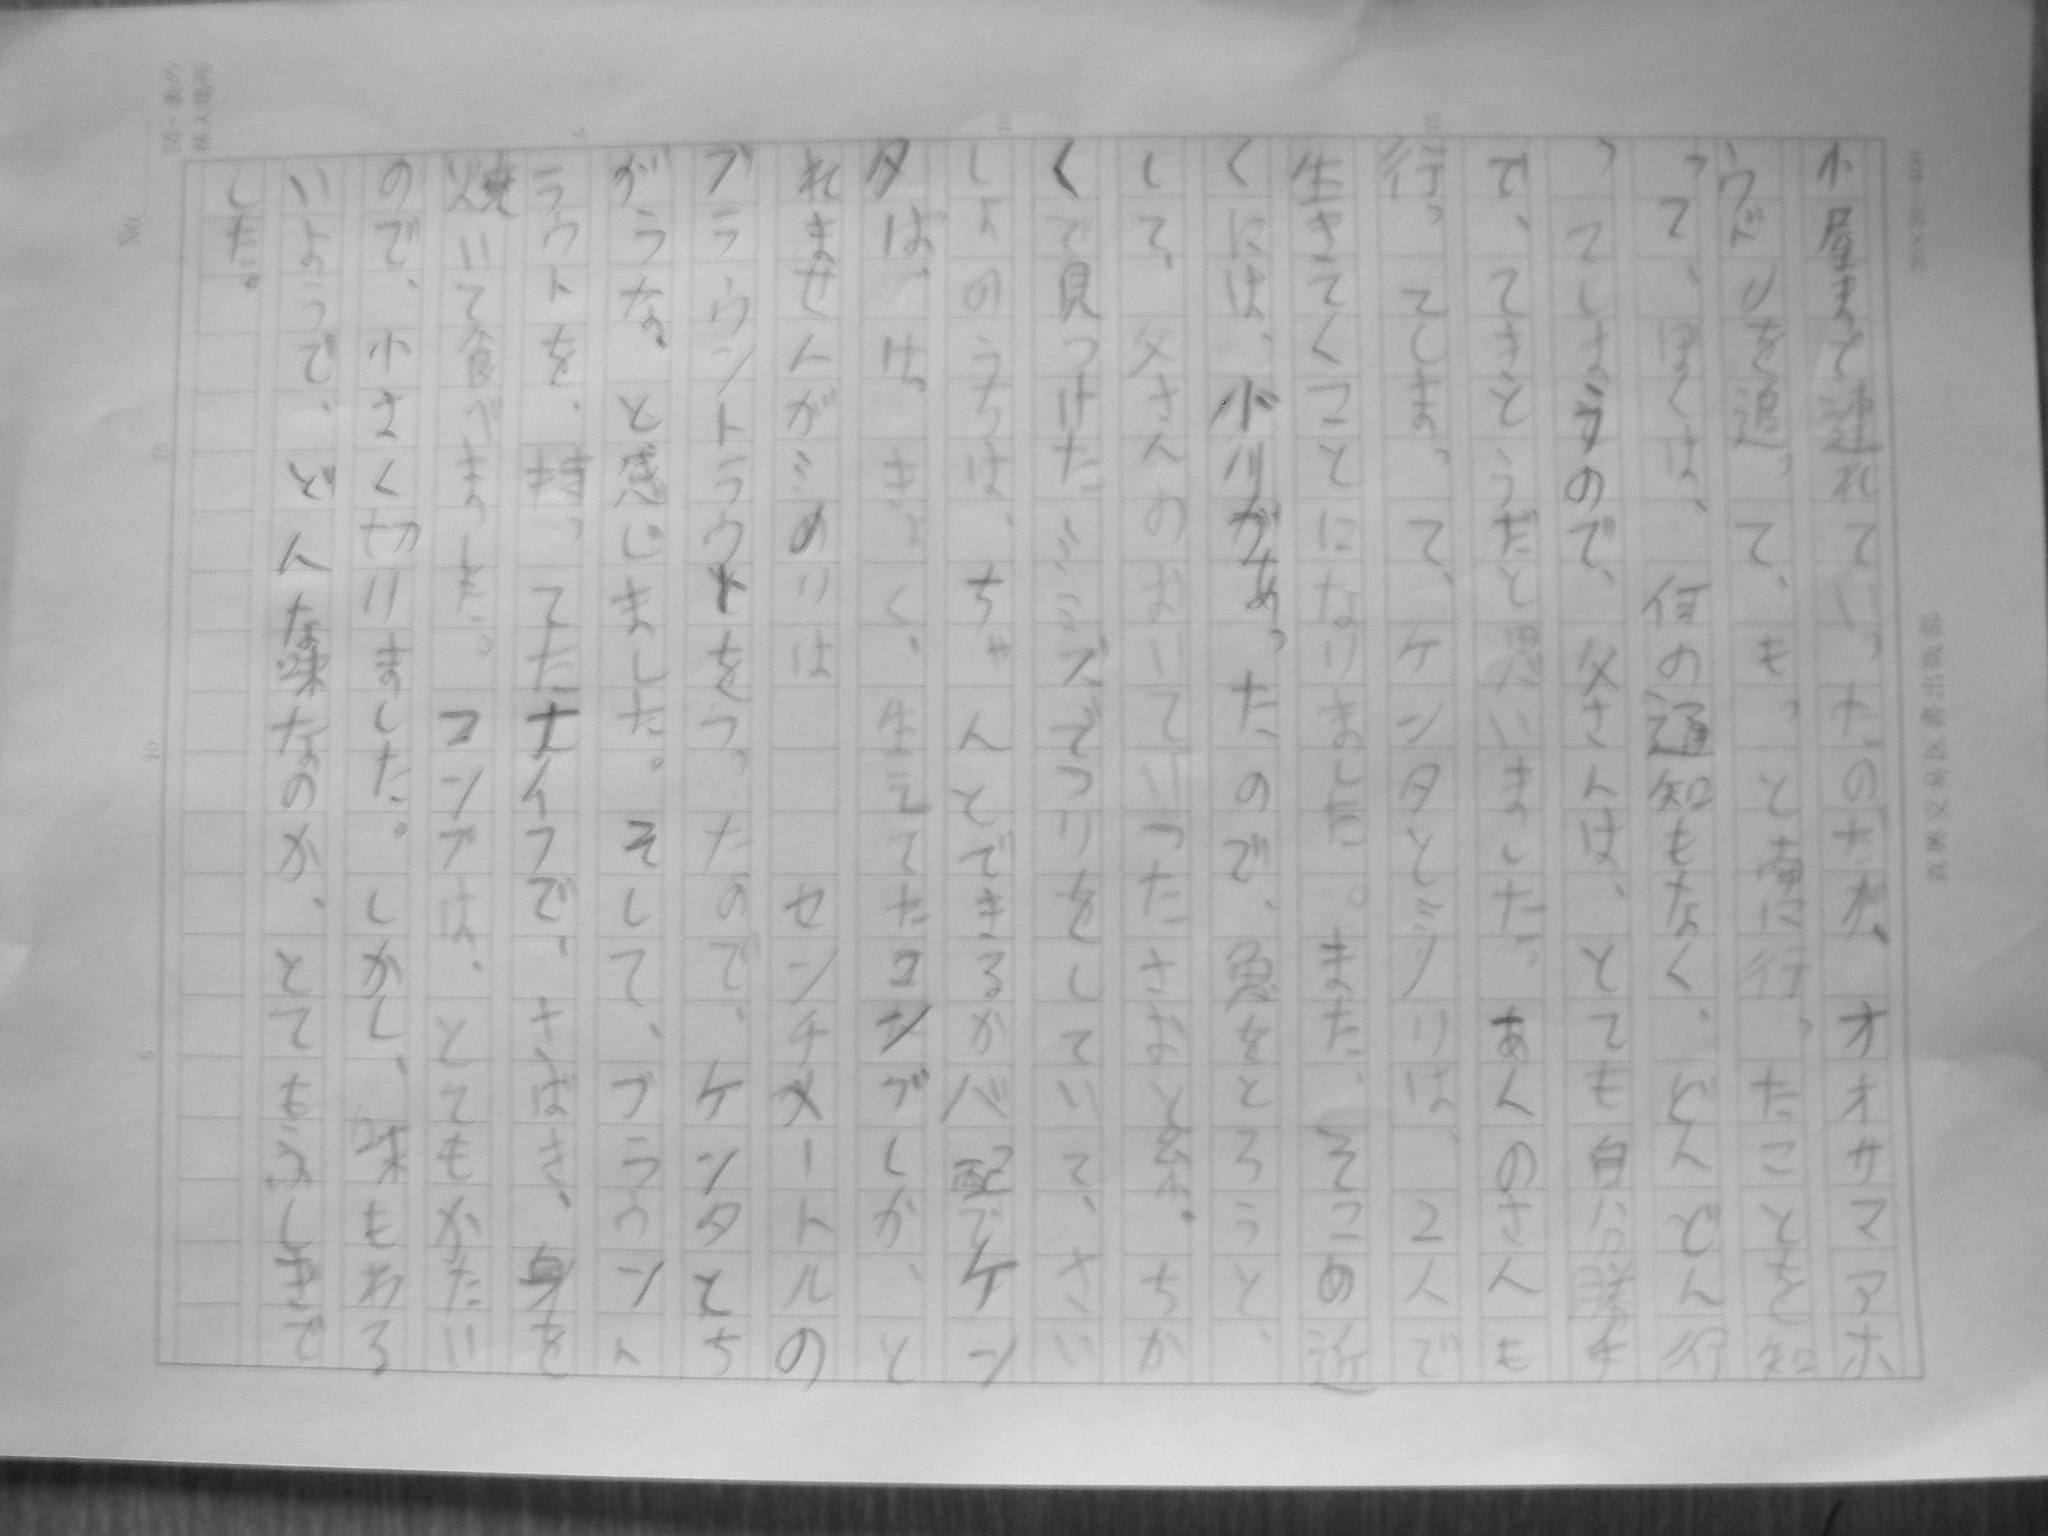 小屋まで連れていったのだが、オオサマアホ
ウドリを追って、もっと南に行ったことを知
って、ぼくは、何の通知もなく、どんどん行
ってしまうので、父さんは、とても自分勝手
で、てきとうだと思いました。あんのさんも
行ってしまって、ケンタとミノリは、2人で
生きてくことになりました。また、そこの近
くには、小川があったので、魚をとろうと、
して、父さんのおいていったさおと糸。ちか
くで見つけたミミズでつりをしていて、さい
しょのうちは、ちゃんとできるかバ配でケン
タは、けっきょく、生えてたコンブしか、と
れませんがミのりはセンチメートルの
ブラウントラウトをつったので、ケンタとち
がうな。と感じました。そして、ブラウント
ラウトを、持ってたナイフで、さばき、身を
焼いて食べました。コンブは、とてもかたい
ので、小さく切りました。しかし、味もわる
いようで、どんな味なのか、とてもふしぎで
した。
20×20
真興交易医書出版部
No.
5
10
15